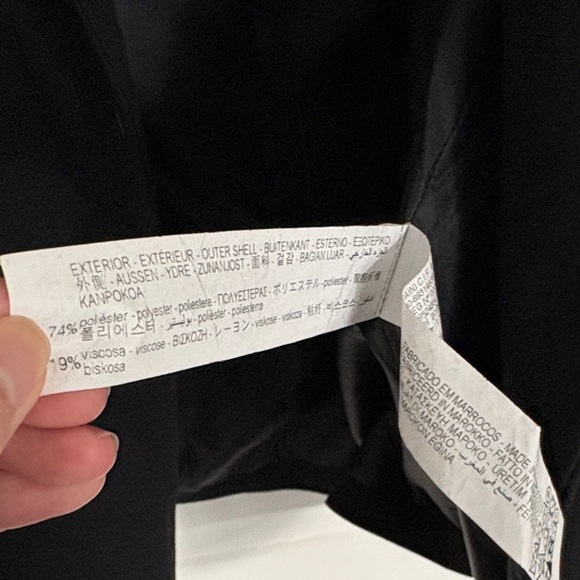 EXTERIOR - EXTÉRIEUR - OUTER SHELL - BUITENKANT - ESTERNO - ΕΞΩΤΕΡΙΚΟ
外側 - AUSSEN - YDRE - ZUNANJOST - 面料 - 겉감 - BAGIAN LUAR - الجزء الخارجي
KANPOKOA
74% poliéster - polyester - poliestere - ΠΟΛΥΕΣΤΕΡΑΣ - ポリエステル - poliester - 聚酯纤维
폴리에스터 - بوليستير - polièster - poliesterra
19% viscosa - viscose - ΒΙΣΚΟΖΗ - レーヨン - viskose - viskoza - 粘纤 - 비스코스
biskosa
FABRICADO EM MARROCOS - MADE
IN MAROKKO - FATTO IN
ΚΑΤΑΣΚΕΥΗ ΜΑΡΟΚΟ - URETIM
DI MAROKO - صنع في المغرب - FE
MAROKON EGINA